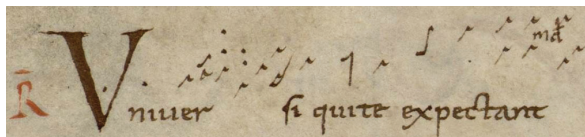 R̄ Vniuer si quite expectant